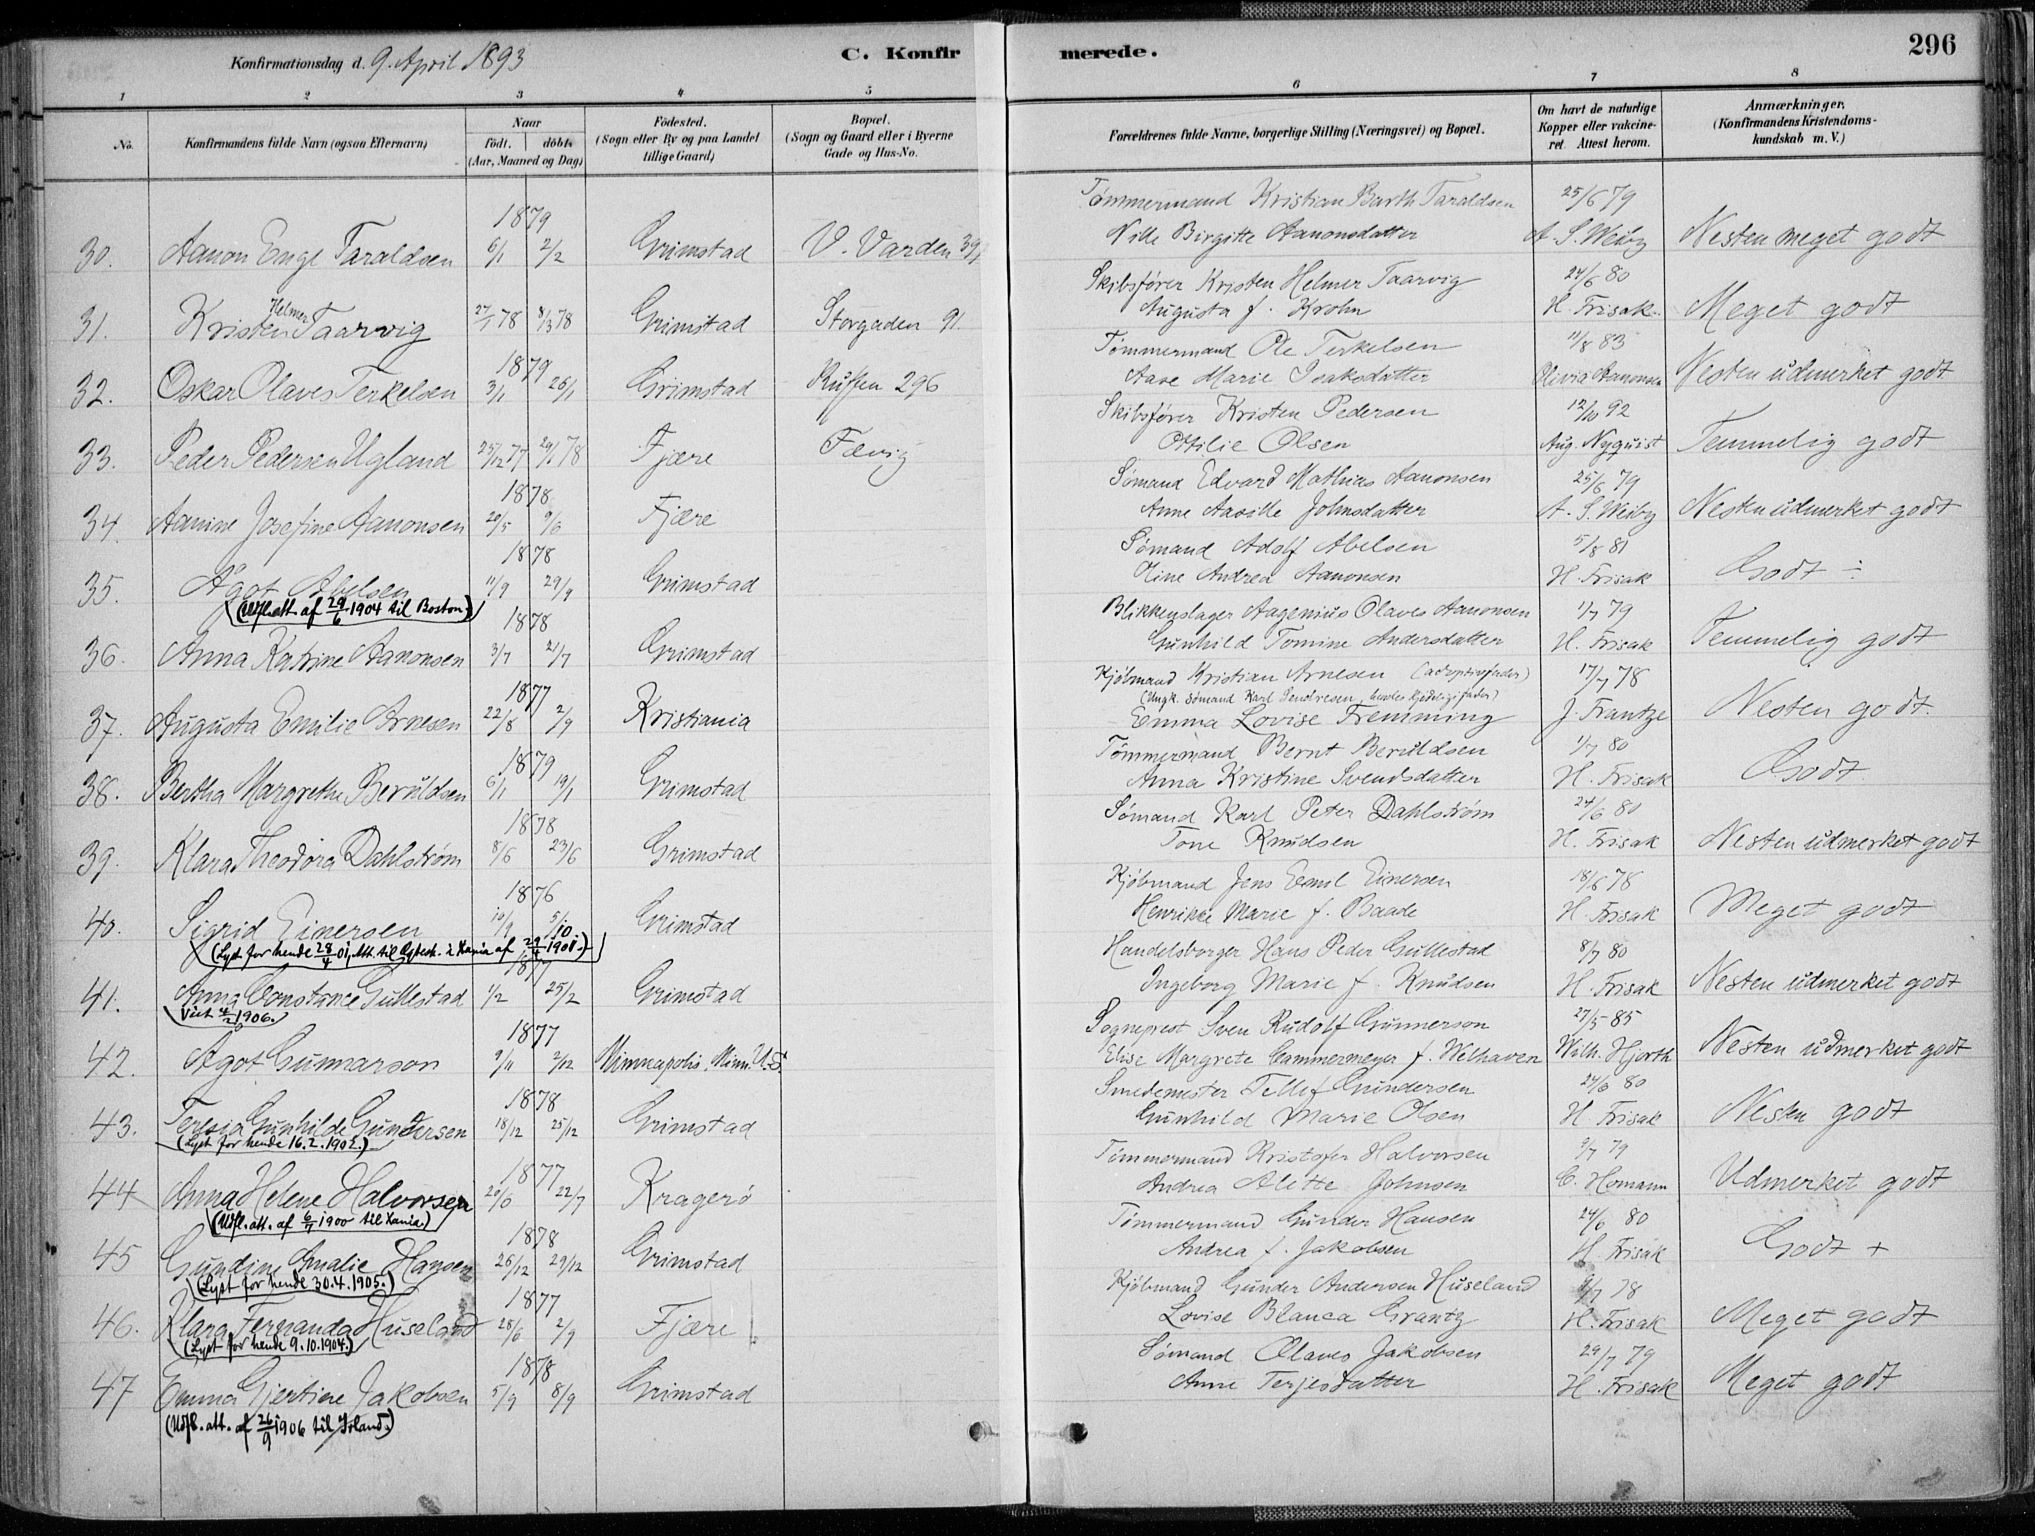 Konfirmationsdag d. 9. April 1893
C. Konfirmerede.
296
1 2 3 4 5 6 7 8
No.
Konfirmandens fulde Navn (ogsaa Efternavn)
Naar
født. døbt.
(Aar, Maaned og Dag)
Fødested.
(Sogn eller By og paa Landet
tillige Gaard)
Bopæl.
(Sogn og Gaard eller i Byerne
Gade og Hus-No.
Forældrenes fulde Navne, borgerlige Stilling (Næringsvei) og Bopæl.
Om havt de naturlige
Kopper eller vakcine-
ret. Attest herom.
Anmærkninger.
(Konfirmandens Kristendoms-
kundskab m. V.)
1879 Tømmermand Kristian Barth Taraldsen 25/6 79
30. Aanon Enge Taraldsen 6/1 2/2 Grimstad V. Varden 39 Nille Birgitte Aanonsdatter A. S. Weiby Nesten meget godt
Skibsfører Kristen Helmer Taarvig 24/6 80
31. Kristen Helmer Taarvig 27/1 78 8/3 78 Grimstad Storgaden 91. Augusta f. Krohn H. Frisak. Meget godt
1879 Tømmermand Ole Terkelsen 11/8 83
32. Oskar Olaves Terkelsen 3/1 26/1 Grimstad Kuffen 296 Aase Marie Isaksdatter Olivia Aanonsen Nesten udmerket godt
Skibsfører Kristen Pedersen 12/10 92
33. Peder Pedersen Ugland 25/12 77 29/1 78 Fjære Fævig Ottilie Olsen Aug. Nyquist Temmelig godt
1878 Sømand Edvard Mathias Aanonsen 25/6 79
34. Aanine Josefine Aanonsen 20/5 9/6 Fjære Anne Aasille Johnsdatter A. S. Weiby Nesten udmerket godt
1878 Sømand Adolf Abelsen 5/8 81
35. Ågot Abelsen 11/9 29/9 Grimstad Oline Andrea Aanonsen H. Frisak Godt ÷
(Utfl.att. af 29/6 1904 til Boston.)
1878 Blikkenslager Aagenius Olaves Aanonsen 1/7 79
36. Anna Katrine Aanonsen 3/7 21/7 Grimstad Gunhild Tomine Andersdatter H. Frisak Temmelig godt
1877 Kjøbmand Kristian Arnesen (adoptivfader) 17/7 78
(Ungk. Sømand Karl , hendes fader)
37. Augusta Emilie Arnesen 22/8 2/9 Kristiania Emma Lovise Fremming J. Frantze Nesten godt.
1879 Tømmermand Bernt Beruldsen 1/7 80
38. Bertha Margrethe Beruldsen 6/1 19/1 Grimstad Anna Kristine Svendsdatter H. Frisak Godt
1878 Sømand Karl Peter Dahlstrøm 24/6 80
39. Klara Theodora Dahlstrøm 8/6 23/6 Grimstad Tone Knudsen H. Frisak Nesten udmerket godt
1876 Kjøbmand Jens Emil Einersen 18/6 78
40. Sigrid Einersen 10/9 5/10 Grimstad Henrikke Marie f. Baade H. Frisak Meget godt
(Lyst for hende 28/4 01, Att. til i Xania af 29/4 1901.)
1877 Handelsborger Hans Peder Gullestad 8/7 80
41. Anna Constance Gullestad 1/2 25/2 Grimstad Ingeborg Marie f. Knudsen H. Frisak Nesten udmerket godt
Viet 4/2 1906.
1877 Sogneprest Sven Rudolf Gunnerson 27/5 85
42. Agot Gunnarson 9/11 2/12 Minneapolis, Minn. U.S. Elise Margrete Cammermeyer f. Welhaven Wilh. Hjorth Nesten udmerket godt
1878 Smedemester Tellef Gundersen 24/6 80
43. Teresia Gunhilde Gundersen 18/12 25/12 Grimstad Gunhild Marie Olsen H. Frisak Nesten godt
(Lyst for hende 16.2.1902.)
1877 Tømmermand Kristofer Halvorsen 9/7 79
44 Anna Helene Halvorsen 20/6 22/7 Kragerø Andrea Alette Johnsen C. Homann Udmerket godt
(Utfl. att. af 6/7 1900 til Xania.)
1878 Tømmermand Gunder Hansen 24/6 80
45 Gundine Amalie Hansen 26/12 29/12 Grimstad Andrea f. Jakobsen H. Frisak Godt +
(Lyst for hende 30.4.1905.)
1877 Kjøbmand Gunder Andersen Huseland 9/7 78
46. Klara Fernanda Huseland 28/6 2/9 Fjære Lovise Blanca Grantz H. Frisak Meget godt
(Lyst for hende 9.10.1904.)
1878 Sømand Olaves Jakobsen 29/7 79
47 Emma Gjertine Jakobsen 5/9 8/9 Grimstad Anne Terjesdatter H. Frisak Meget godt
(Utfl. att. af 26/9 1906 til Irland.)